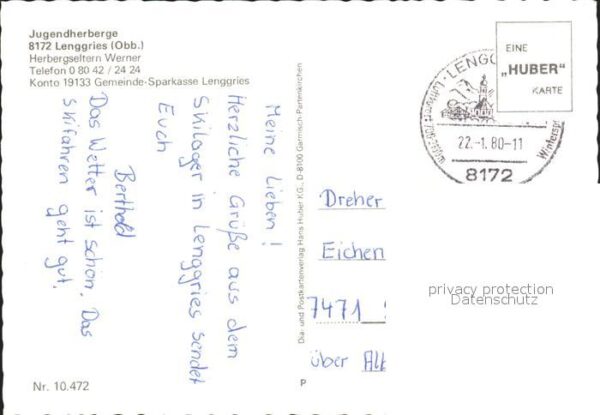 Jugendherberge
8172 Lenggries (Obb.)
Herbergseltern Werner
Telefon 0 80 42 / 24 24
Konto 19133 Gemeinde-Sparkasse Lenggries
Meine Lieben!
Herzliche Grüße aus dem
Skilager in Lenggries sendet
Euch
Berthold
Das Wetter ist schön. Das
Skifahren geht gut!
Nr. 10.472
Dia- und Postkartenverlag Hans Huber KG., D-8100 Garmisch-Partenkirchen
P
LENGG
Luftkurort
Winterspo
22.-1.80-11
8172
EINE
„HUBER"
KARTE
Dreher
Eichen
7471
über Alb
privacy protection
Datenschutz